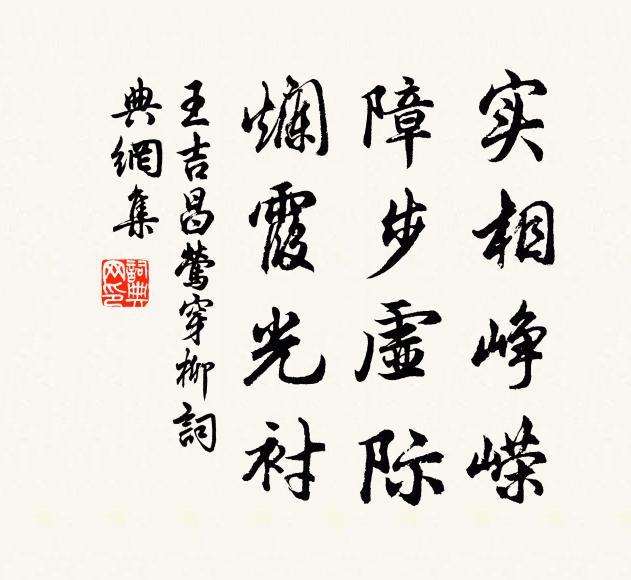 实相峥嵘
障步虚际
斓霞光衬
王吉昌莺穿柳词
典網集
詞典網印